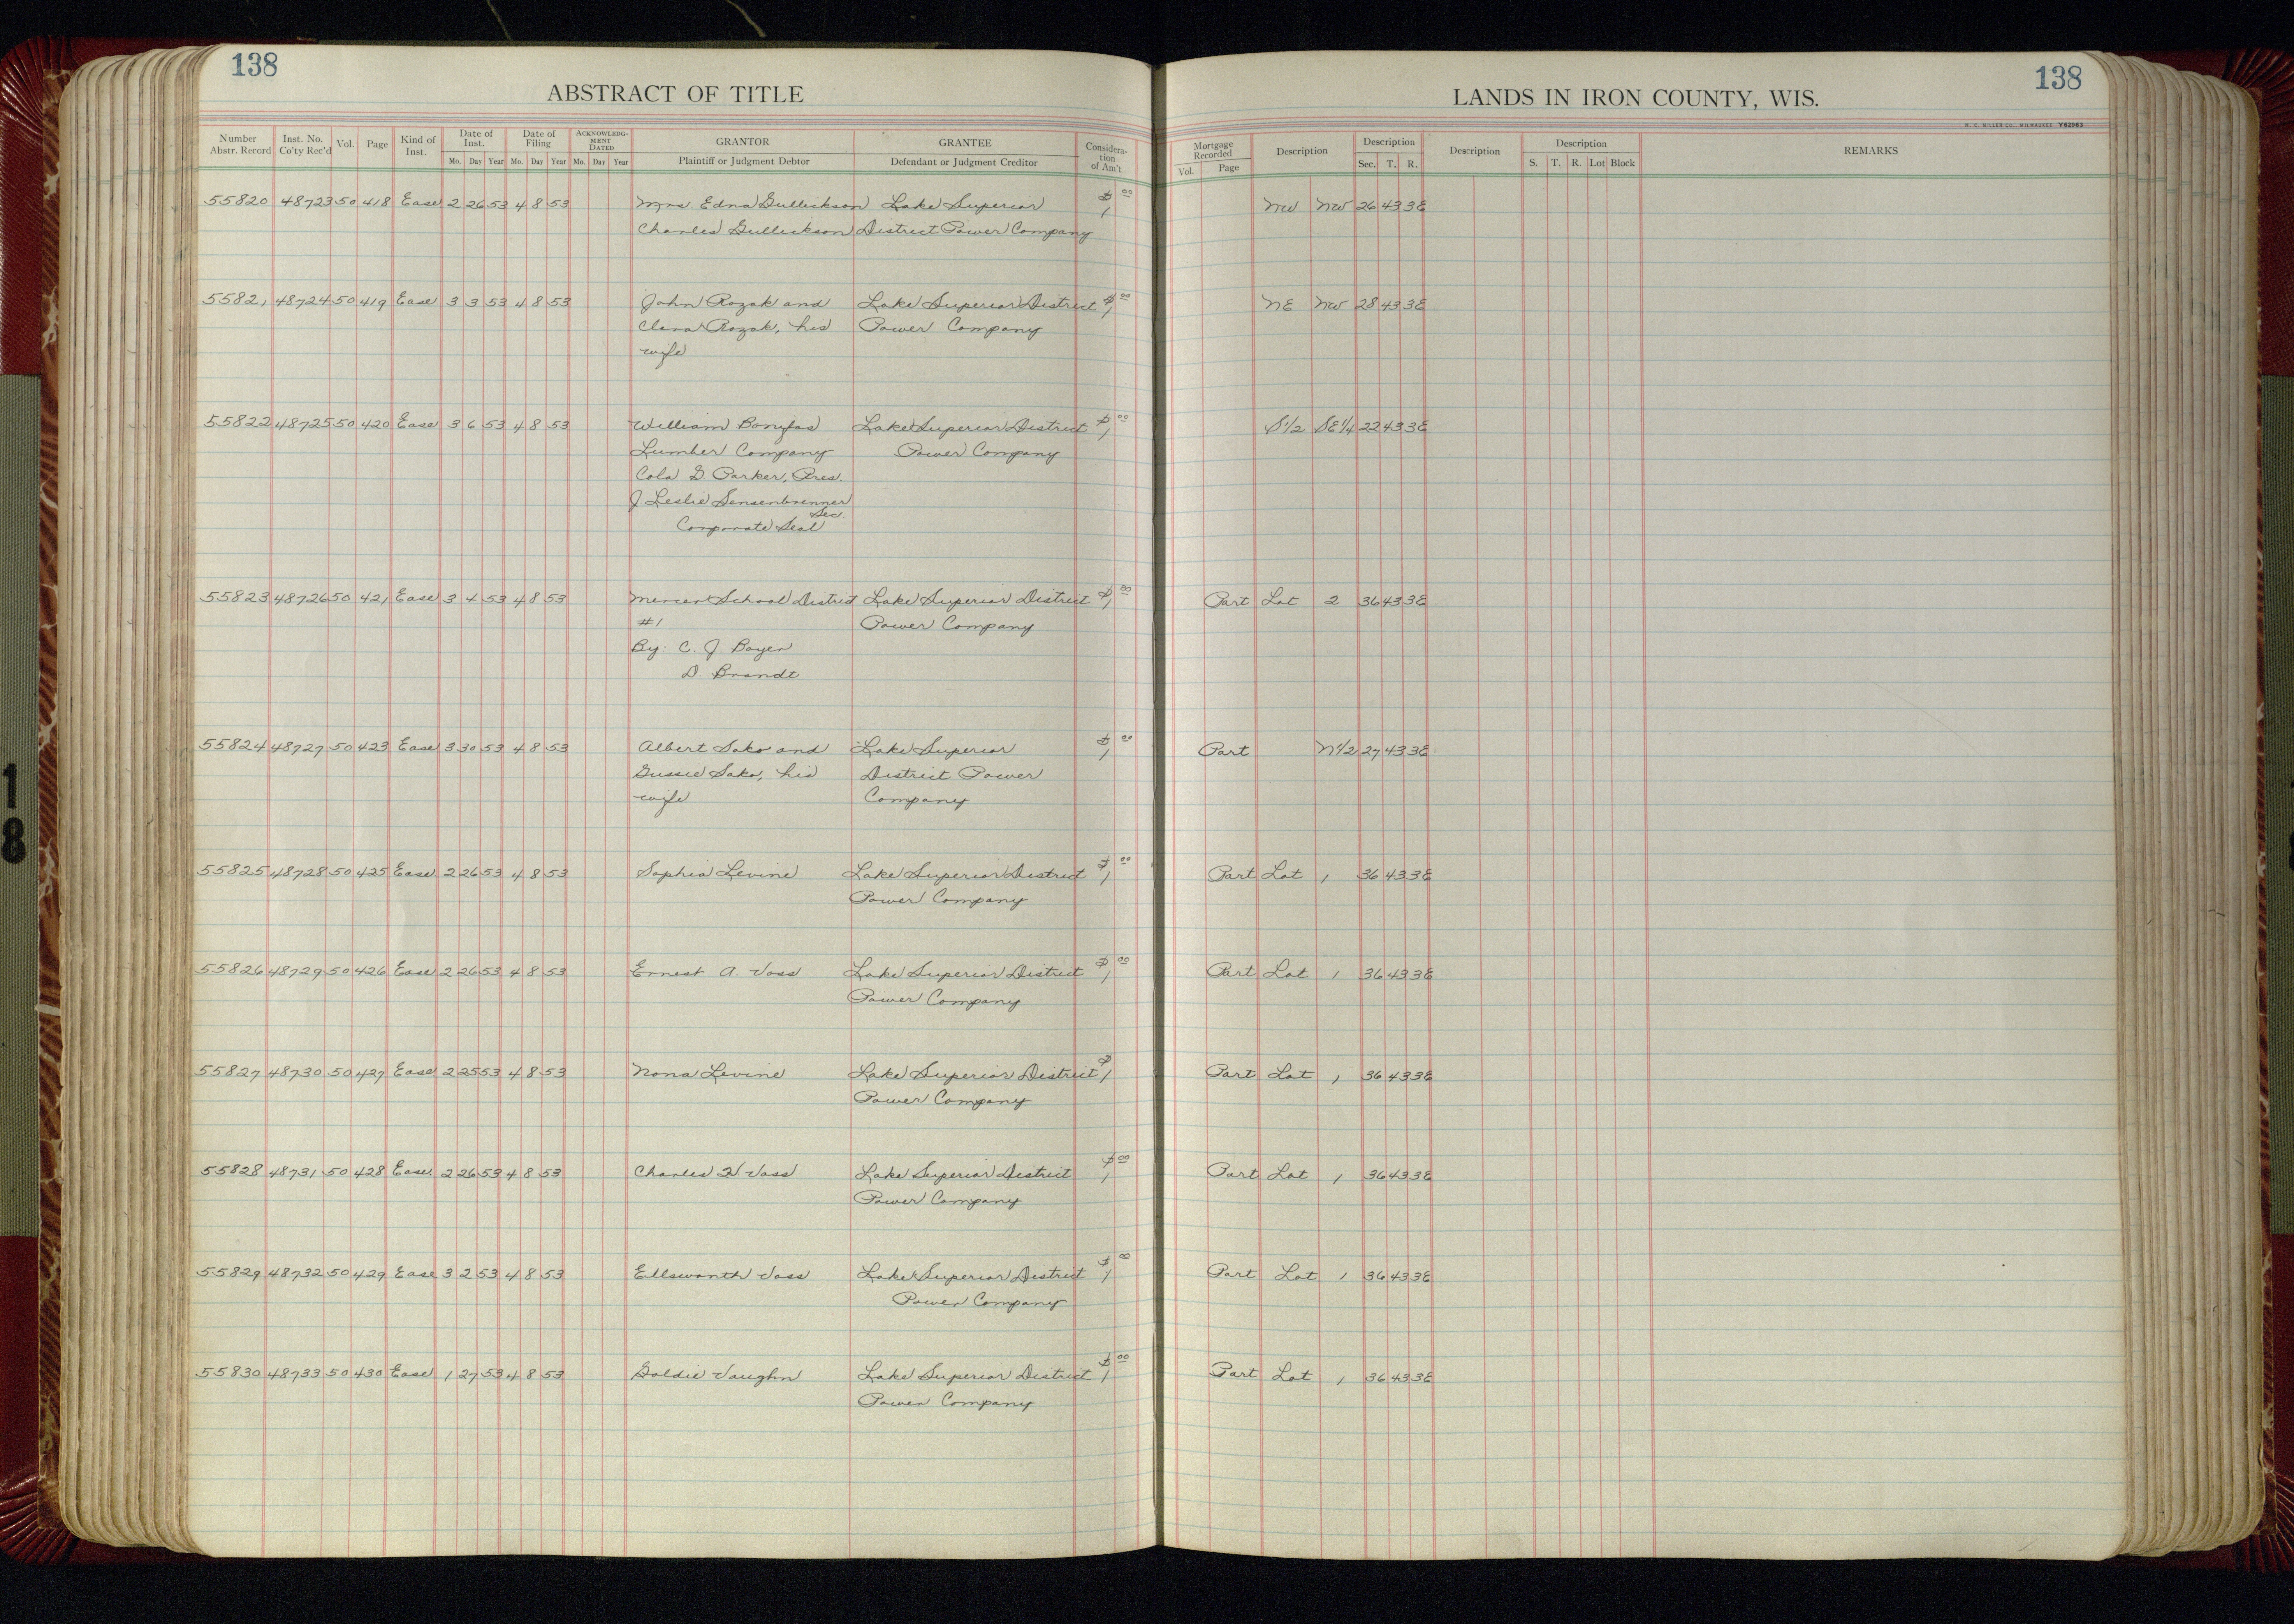 138
138
ABSTRACT OF TITLE
LANDS IN IRON COUNTY, WIS.
M. C. MILLER CO., MILWAUKEE Y62963
Number Abstr. Record Inst. No. Co'ty Rec'd Vol. Page Kind of Inst. Date of Inst. Mo. Day Year Date of Filing Mo. Day Year ACKNOWLEDGMENT DATED Mo. Day Year GRANTOR Plaintiff or Judgment Debtor GRANTEE Defendant or Judgment Creditor Consideration of Am't
Mortgage Recorded Vol. Page Description Description Sec. T. R. Description Description S. T. R. Lot Block REMARKS
55820 48723 50 418 Ease 2 26 53 4 8 53 Mrs. Edna Gullickson Lake Superior $1 00 NW NW 26 43 3E
Charles Gullickson District Power Company
55821 48724 50 419 Ease 3 3 53 4 8 53 John Rozak and Lake Superior District $1 00 NE NW 28 43 3E
Clara Rozak, his Power Company
wife
55822 48725 50 420 Ease 3 6 53 4 8 53 William Bonifas Lake Superior District $1 00 S1/2 SE1/4 22 43 3E
Lumber Company Power Company
Cola G. Parker, Pres.
J Leslie Sensenbrenner
Sec.
Corporate Seal
55823 48726 50 421 Ease 3 4 53 4 8 53 Mercer School District Lake Superior District $1 00 Part Lot 2 36 43 3E
#1 Power Company
By: C. J. Boyer
D. Brandt
55824 48727 50 423 Ease 3 30 53 4 8 53 Albert Sako and Lake Superior $1 00 Part N1/2 27 43 3E
Gussie Sako, his District Power
wife Company
55825 48728 50 425 Ease 2 26 53 4 8 53 Sophia Levine Lake Superior District $1 00 Part Lot 1 36 43 3E
Power Company
55826 48729 50 426 Ease 2 26 53 4 8 53 Ernest A. Voss Lake Superior District $1 00 Part Lot 1 36 43 3E
Power Company
55827 48730 50 427 Ease 2 25 53 4 8 53 Nona Levine Lake Superior District $1 Part Lot 1 36 43 3E
Power Company
55828 48731 50 428 Ease. 2 26 53 4 8 53 Charles Voss Lake Superior District $1 00 Part Lot 1 36 43 3E
Power Company
55829 48732 50 429 Ease 3 2 53 4 8 53 Ellsworth Voss Lake Superior District $1 00 Part Lot 1 36 43 3E
Power Company
55830 48733 50 430 Ease 1 27 53 4 8 53 Goldie Vaughn Lake Superior District $1 00 Part Lot 1 36 43 3E
Power Company
18